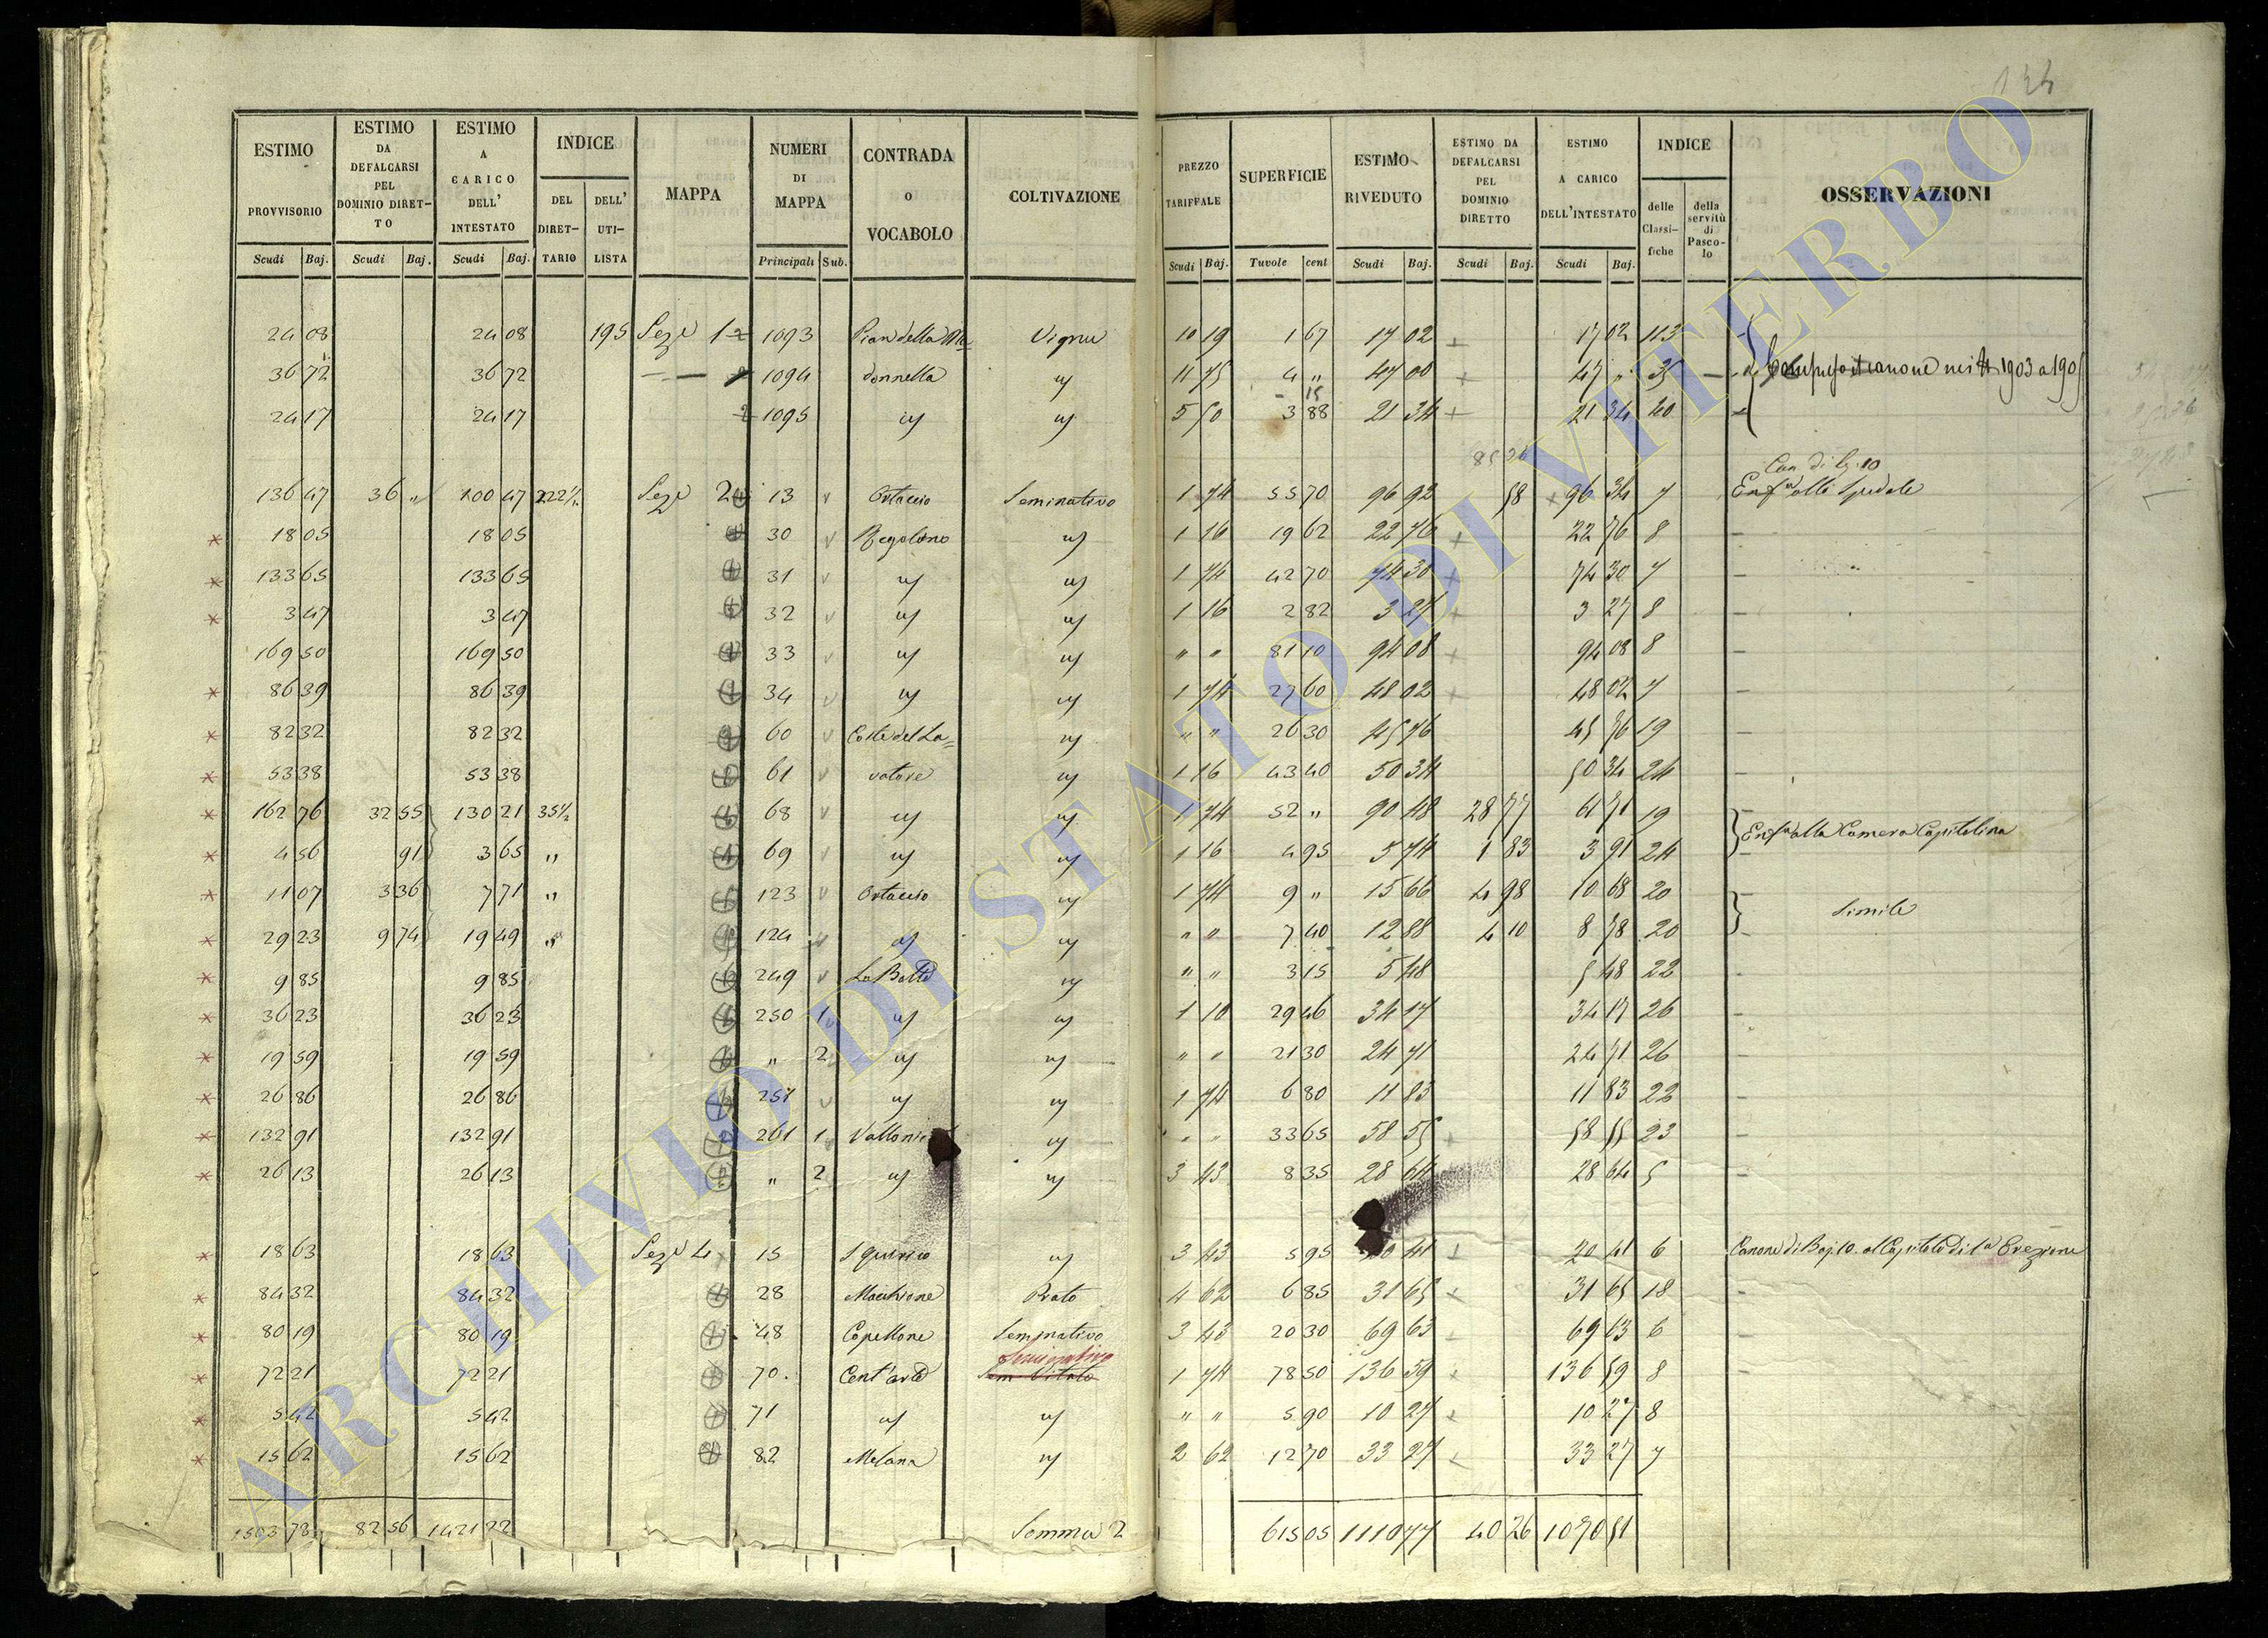 134
ESTIMO PROVVISORIO | ESTIMO DA DEFALCARSI PEL DOMINIO DIRETTO | ESTIMO A CARICO DELL' INTESTATO | INDICE | MAPPA | NUMERI DI MAPPA | CONTRADA O VOCABOLO | COLTIVAZIONE | PREZZO TARIFFALE | SUPERFICIE | ESTIMO RIVEDUTO | ESTIMO DA DEFALCARSI PEL DOMINIO DIRETTO | ESTIMO A CARICO DELL'INTESTATO | INDICE | OSSERVAZIONI
DEL DIRETTARIO | DELL' UTILISTA | delle Classifiche | della servitù di Pascolo
Scudi | Baj. | Scudi | Baj. | Scudi | Baj. | Principali | Sub. | Scudi | Baj. | Tavole | cent | Scudi | Baj. | Scudi | Baj. | Scudi | Baj.
24 08 | 24 08 | 195 | Sez.e 1 | 1093 | Pian della Ma= | Vigna | 10 19 | 1 67 | 17 02 | 17 02 | 113
36 72 | 36 72 | 1094 | donnella | " | 11 75 | 4 " | 47 00 | 47 " | 35 | canone nei 1903 a 1905
24 17 | 24 17 | 1095 | " | " | 5 50 | 3 88 | 21 34 | 21 34 | 40
Can. di
136 47 | 36 " | 100 47 | 222 1/2 | Sez.e 2 | 13 | Ortaccio | Seminativo | 1 74 | 55 70 | 96 92 | 58 | 96 34 | 7 | Enf.a allo Spedale
18 05 | 18 05 | 30 | Regolano | " | 1 16 | 19 62 | 22 76 | 22 76 | 8
133 65 | 133 65 | 31 | " | " | 1 74 | 42 70 | 74 30 | 74 30 | 7
3 47 | 3 47 | 32 | " | " | 1 16 | 2 82 | 3 27 | 3 27 | 8
169 50 | 169 50 | 33 | " | " | " " | 81 10 | 94 08 | 94 08 | 8
86 39 | 86 39 | 34 | " | " | 1 74 | 27 60 | 48 02 | 48 02 | 7
82 32 | 82 32 | 60 | Coste del La= | " | " " | 26 30 | 45 76 | 45 76 | 19
53 38 | 53 38 | 61 | vatore | " | 1 16 | 43 40 | 50 34 | 50 34 | 24
162 76 | 32 55 | 130 21 | 35 1/2 | 68 | " | " | 1 74 | 52 " | 90 48 | 28 77 | 61 71 | 19 | Enf.a alla Camera Capitolina
4 56 | 91 | 3 65 | " | 69 | " | " | 1 16 | 4 95 | 5 74 | 1 83 | 3 91 | 24
11 07 | 3 36 | 7 71 | " | 123 | Ortaccio | " | 1 74 | 9 " | 15 66 | 4 98 | 10 68 | 20 | Simile
29 23 | 9 74 | 19 49 | " | 124 | " | " | " " | 7 40 | 12 88 | 4 10 | 8 78 | 20
9 85 | 9 85 | 249 | La Botte | " | " " | 3 15 | 5 48 | 5 48 | 22
36 23 | 36 23 | 250 | 1 | " | " | 1 16 | 29 46 | 34 17 | 34 17 | 26
19 59 | 19 59 | " | 2 | " | " | " " | 21 30 | 24 71 | 24 71 | 26
26 86 | 26 86 | 251 | " | " | 1 74 | 6 80 | 11 83 | 11 83 | 22
132 91 | 132 91 | 261 | 1 | " | " " | 33 65 | 58 55 | 58 55 | 23
26 13 | 26 13 | " | 2 | " | " | 3 43 | 8 35 | 28 64 | 28 64 | 5
18 63 | 18 63 | Sez.e 4 | 15 | " | 3 43 | 5 95 | 20 41 | 20 41 | 6 | Canone di Baj. 10. al Capitolo di 1a Erezione
84 32 | 84 32 | 28 | Macchione | Prato | 4 62 | 6 85 | 31 65 | 31 65 | 18
80 19 | 80 19 | 48 | Capellone | Seminativo | 3 43 | 20 30 | 69 63 | 69 63 | 6
Seminativo
72 21 | 72 21 | 70. | Cent'arde | Sem. Vitato | 1 74 | 78 50 | 136 59 | 136 59 | 8
5 42 | 5 42 | 71 | " | " | " " | 5 90 | 10 27 | 10 27 | 8
15 62 | 15 62 | 82 | Melana | " | 2 62 | 12 70 | 33 27 | 33 27 | 7
1503 78 | 82 56 | 1421 22 | Somma 2 | 615 05 | 1110 77 | 40 26 | 1070 51
ARCHIVIO DI STATO DI VITERBO